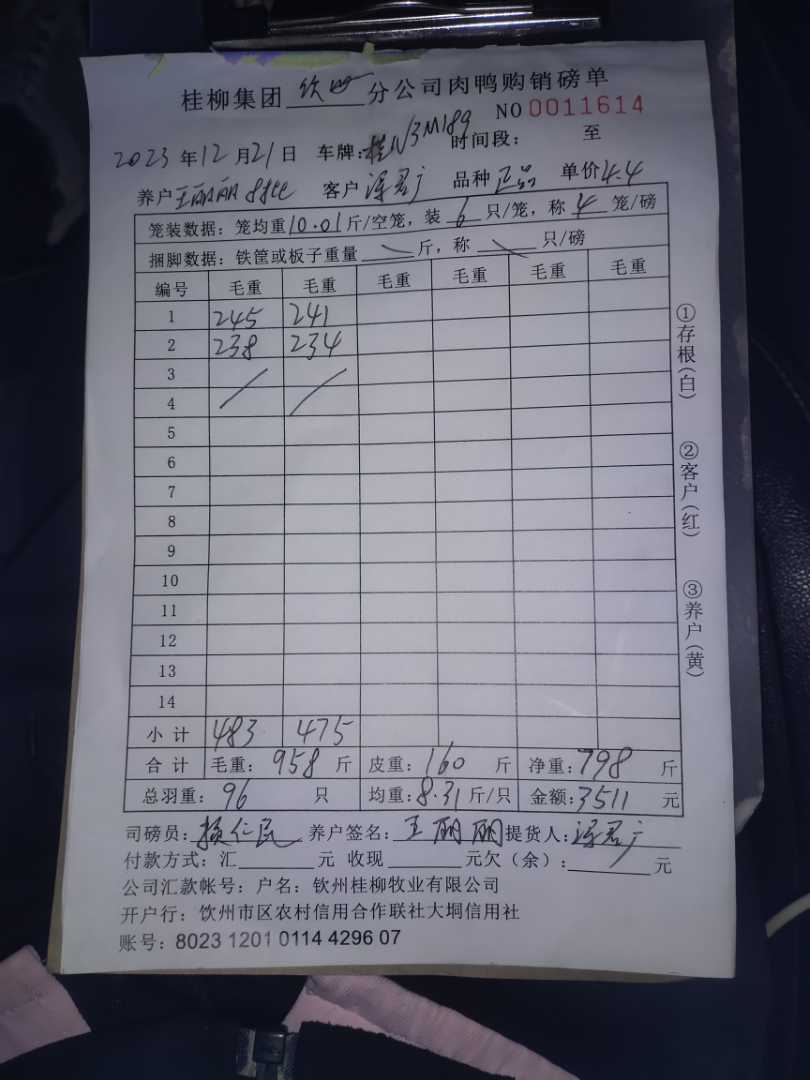 桂柳集团 钦州 分公司肉鸭购销磅单
NO 0011614
2023 年 12 月 21 日 车牌: 桂N3M189 时间段: 至
养户 王丽丽 8批 客户 广 品种 正品 单价 4.4
笼装数据: 笼均重 10.01 斤/空笼, 装 6 只/笼, 称 4 笼/磅
捆脚数据: 铁筐或板子重量 斤, 称 只/磅
编号 毛重 毛重 毛重 毛重 毛重 毛重
1 245 241
2 238 234
3
4
5
6
7
8
9
10
11
12
13
14
小计 483 475
合计 毛重: 958 斤 皮重: 160 斤 净重: 798 斤
总羽重: 96 只 均重: 8.31 斤/只 金额: 3511 元
司磅员: 仁民 养户签名: 王丽丽 提货人: 广
付款方式: 汇 元 收现 元欠(余): 元
公司汇款帐号: 户名: 钦州桂柳牧业有限公司
开户行: 饮州市区农村信用合作联社大垌信用社
账号: 8023 1201 0114 4296 07
①存根(白)
②客户(红)
③养户(黄)